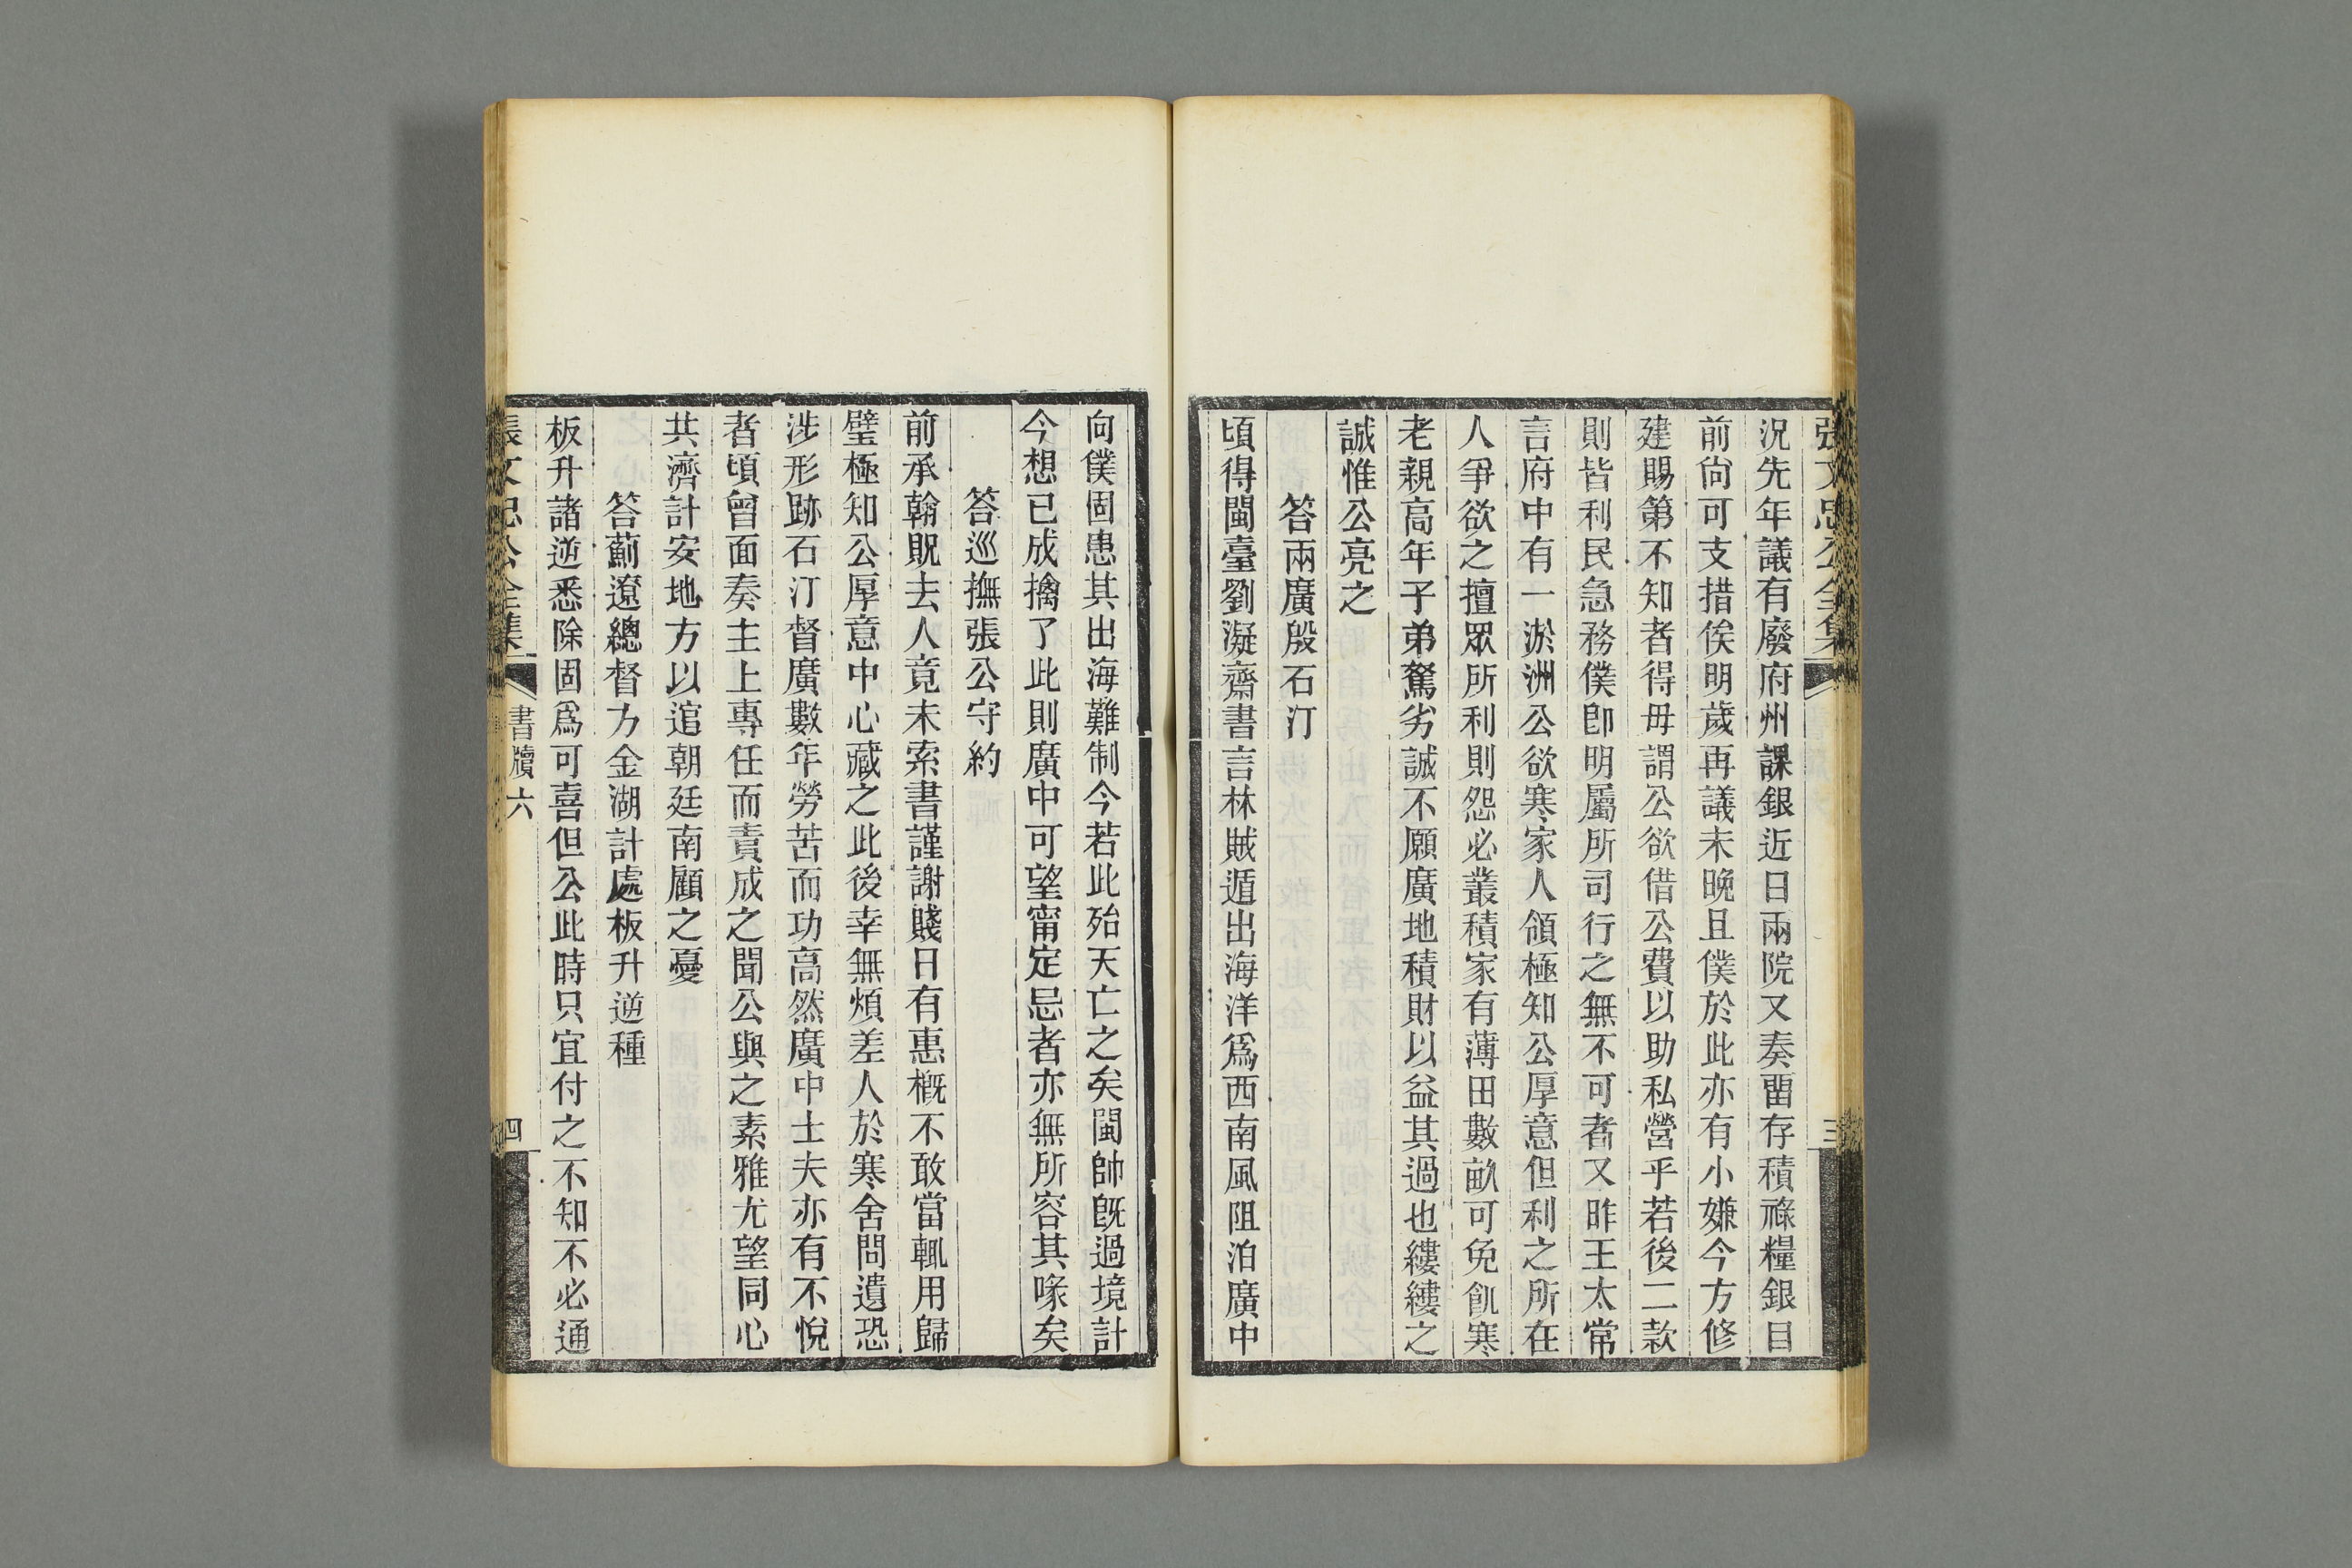 張文忠公全集
三
況先年議有廢府州課銀近日兩院又奏畱存積祿糧銀目
前尙可支措俟明歲再議未晚且僕於此亦有小嫌今方修
建賜第不知者得毋謂公欲借公費以助私營乎若後二款
則皆利民急務僕卽明屬所司行之無不可者又昨王太常
言府中有一淤洲公欲寒家人領極知公厚意但利之所在
人爭欲之擅眾所利則怨必叢積家有薄田數畝可免飢寒
老親高年子弟駑劣誠不願廣地積財以益其過也縷縷之
誠惟公亮之
答兩廣殷石汀
頃得閩臺劉凝齋書言林賊遁出海洋爲西南風阻泊廣中
向僕固患其出海難制今若此殆天亡之矣閩帥旣過境計
今想已成擒了此則廣中可望甯定忌者亦無所容其喙矣
答巡撫張公守約
前承翰貺去人竟未索書謹謝賤日有惠槪不敢當輒用歸
璧極知公厚意中心藏之此後幸無煩差人於寒舍問遺恐
涉形跡石汀督廣數年勞苦而功高然廣中士夫亦有不悅
者頃曾面奏主上專任而責成之聞公與之素雅尤望同心
共濟計安地方以逭朝廷南顧之憂
答薊遼總督方金湖計處板升逆種
板升諸逆悉除固爲可喜但公此時只宜付之不知不必通
張文忠公全集
書牘六
四